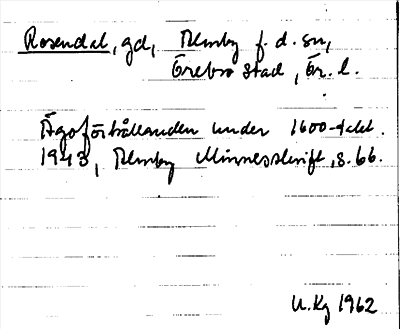 Rosendal, gd, Almby f.d. sn,
Örebro stad, Ör. l.
Ägoförhållanden under 1600-talet.
1943, Almby Minnesskrift, s. 66.
U. Kg 1962